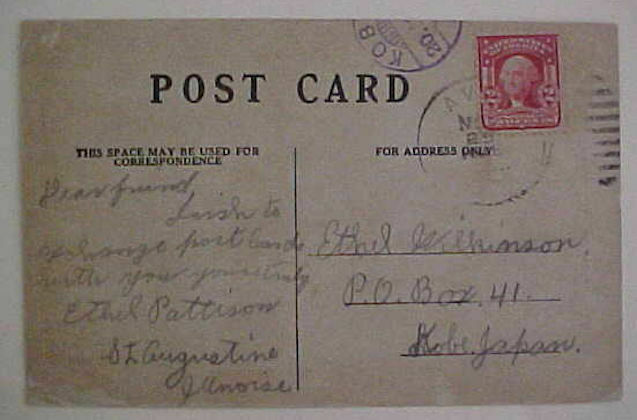 KOB
20.
POST CARD
UNITED STATES
OF AMERICA
2 2
THIS SPACE MAY BE USED FOR
CORRESPONDENCE
FOR ADDRESS ONLY
Dear friend,
I wish to
exchange post Cards
with you yours truly
Ethel Pattison
St Augustine
Illinoise
Ethel Wilkinson,
P.O. Box, 41.
Kobe Japan.